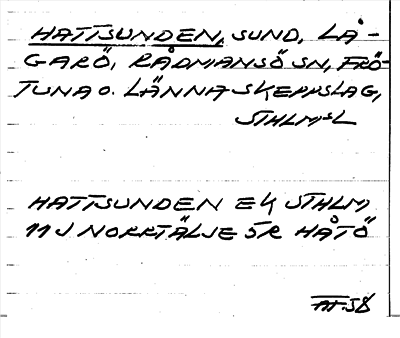 HATTSUNDEN, SUND, LÅ-
GARÖ, RÅDMANSÖ SN, FRÖ-
TUNA O. LÄNNA SKEPPSLAG,
STHLMSL
HATTSUNDEN EK STHLM
11J NORRTÄLJE 5R HÅTÖ